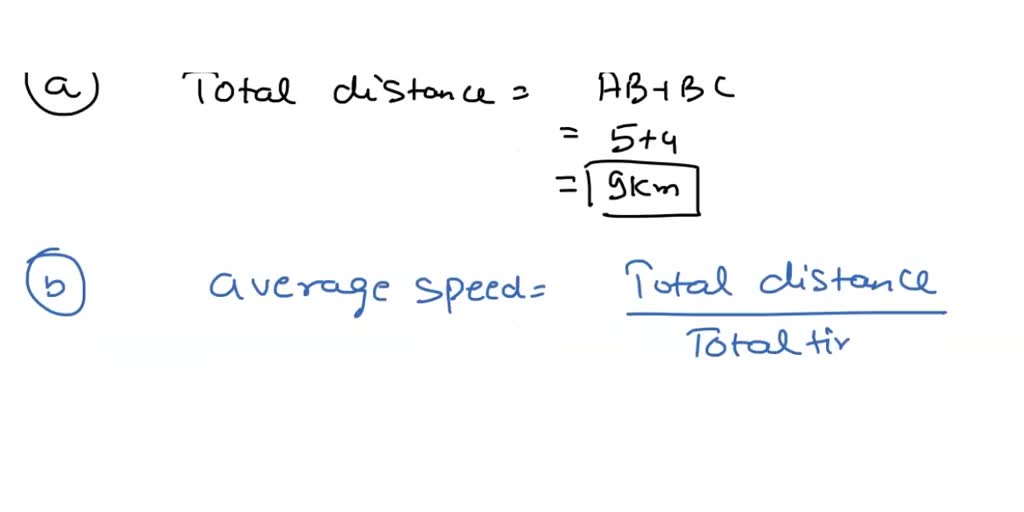 (a) Total distance = AB+BC
= 5+4
= 9km
(b) average speed = Total distance
Total tir